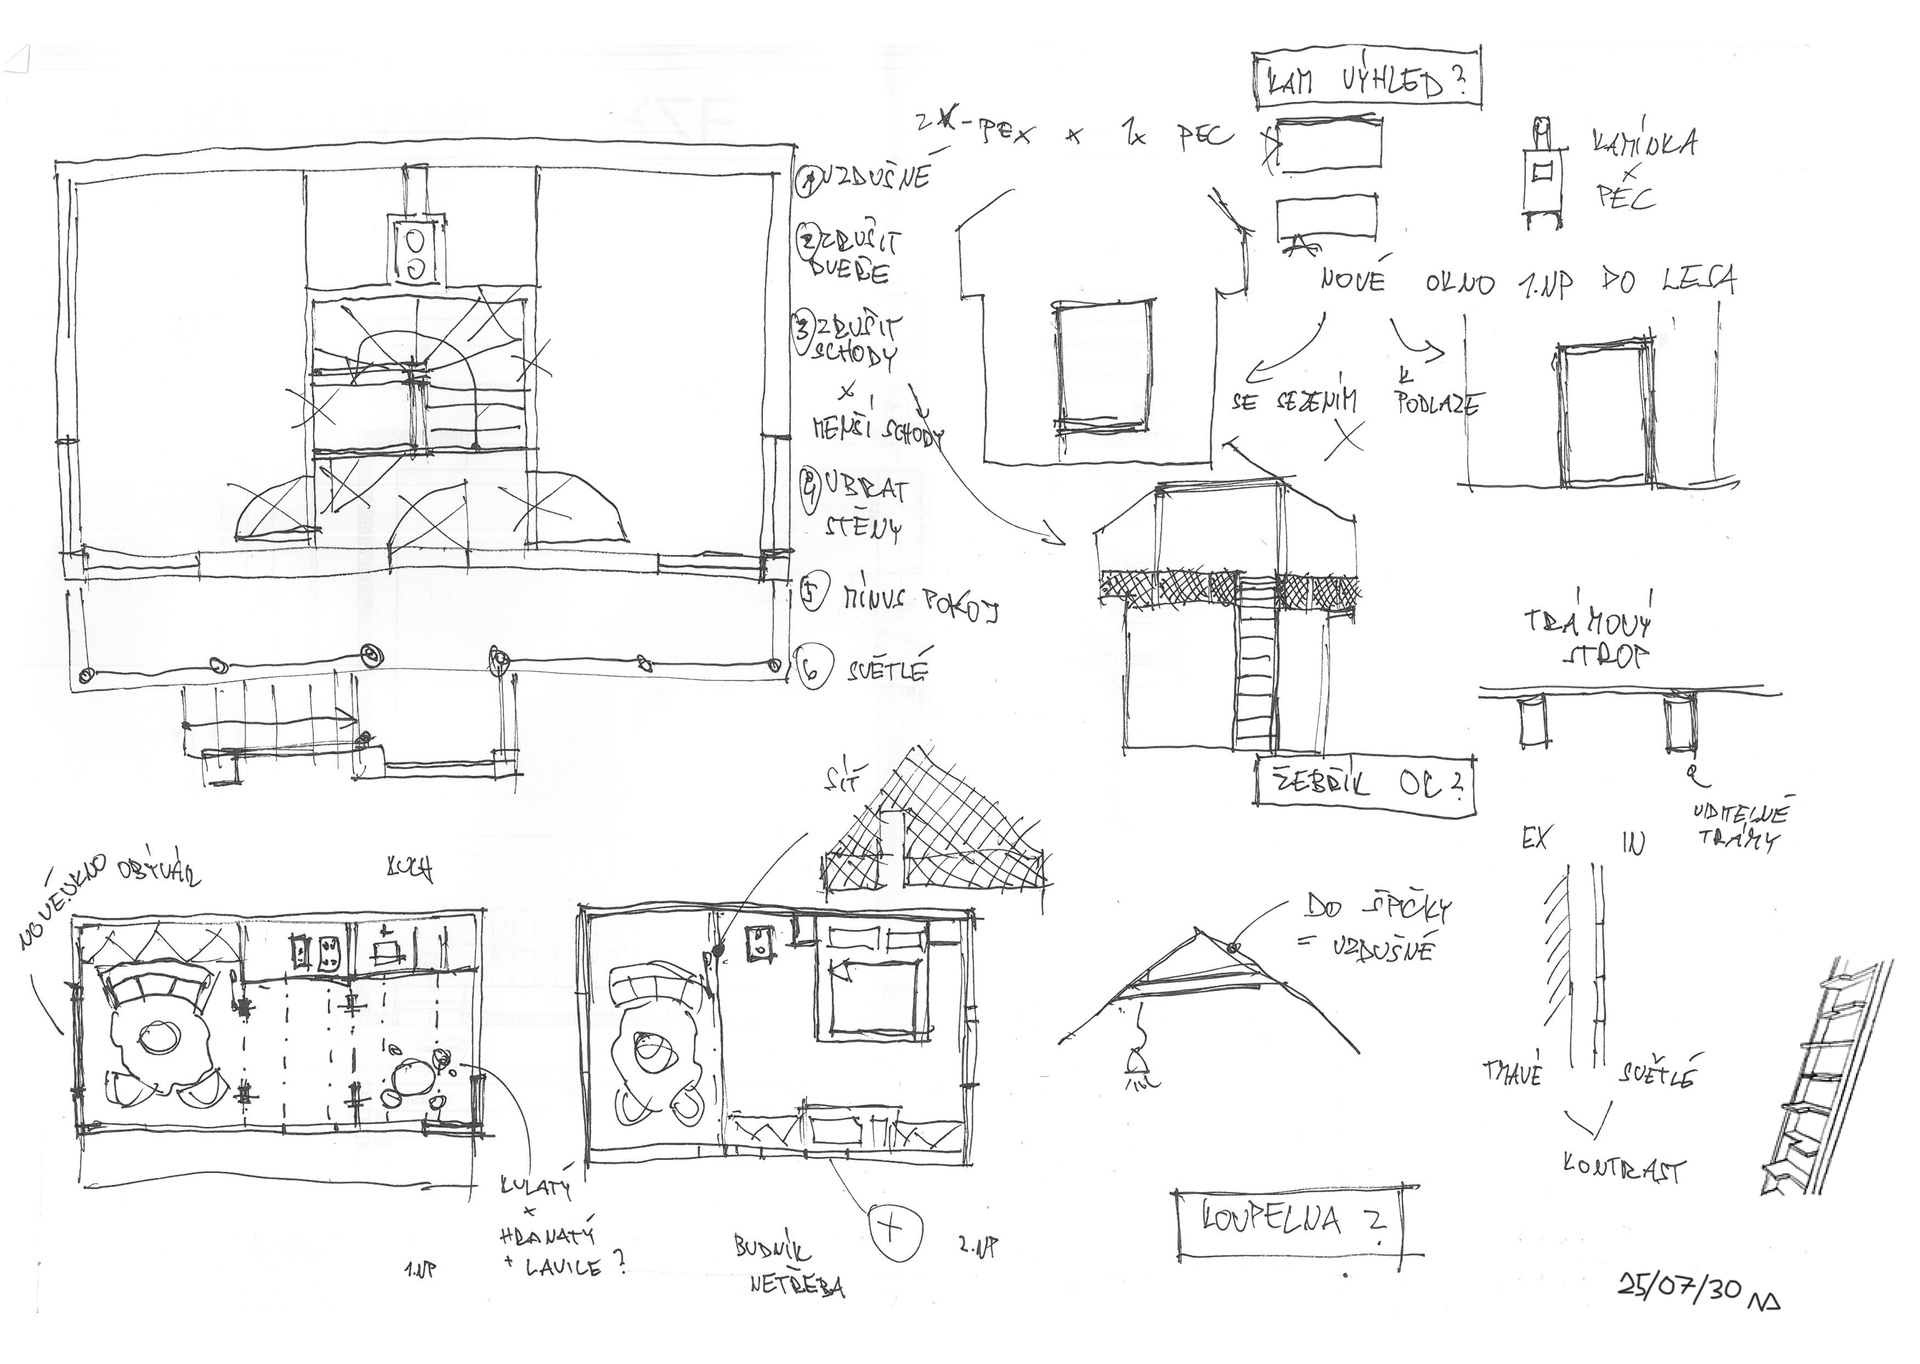 KAM VÝHLED?
2x PEC x 1x PEC
KAMÍNKA
x
PEC
① VZDUŠNÉ
② ZRUŠIT
DVEŘE
③ ZRUŠIT
SCHODY
x
MENŠÍ SCHODY
④ UBRAT
STĚNY
⑤ MÍNUS POKOJ
⑥ SVĚTLÉ
NOVÉ OKNO 1.NP DO LESA
SE SEZENÍM
K
PODLAZE
ŽEBŘÍK OC?
TRÁMOVÝ
STROP
VIDITELNÉ
TRÁMY
EX IN
TMAVÉ SVĚTLÉ
KONTRAST
SÍŤ
DO ŠPIČKY
= VZDUŠNÉ
NOVÉ OKNO
OBÝVÁK
KUCH
KULATÝ
x
HRANATÝ
+ LAVICE?
1.NP
BUDNÍK
NETŘEBA
2.NP
KOUPELNA?
25/07/30